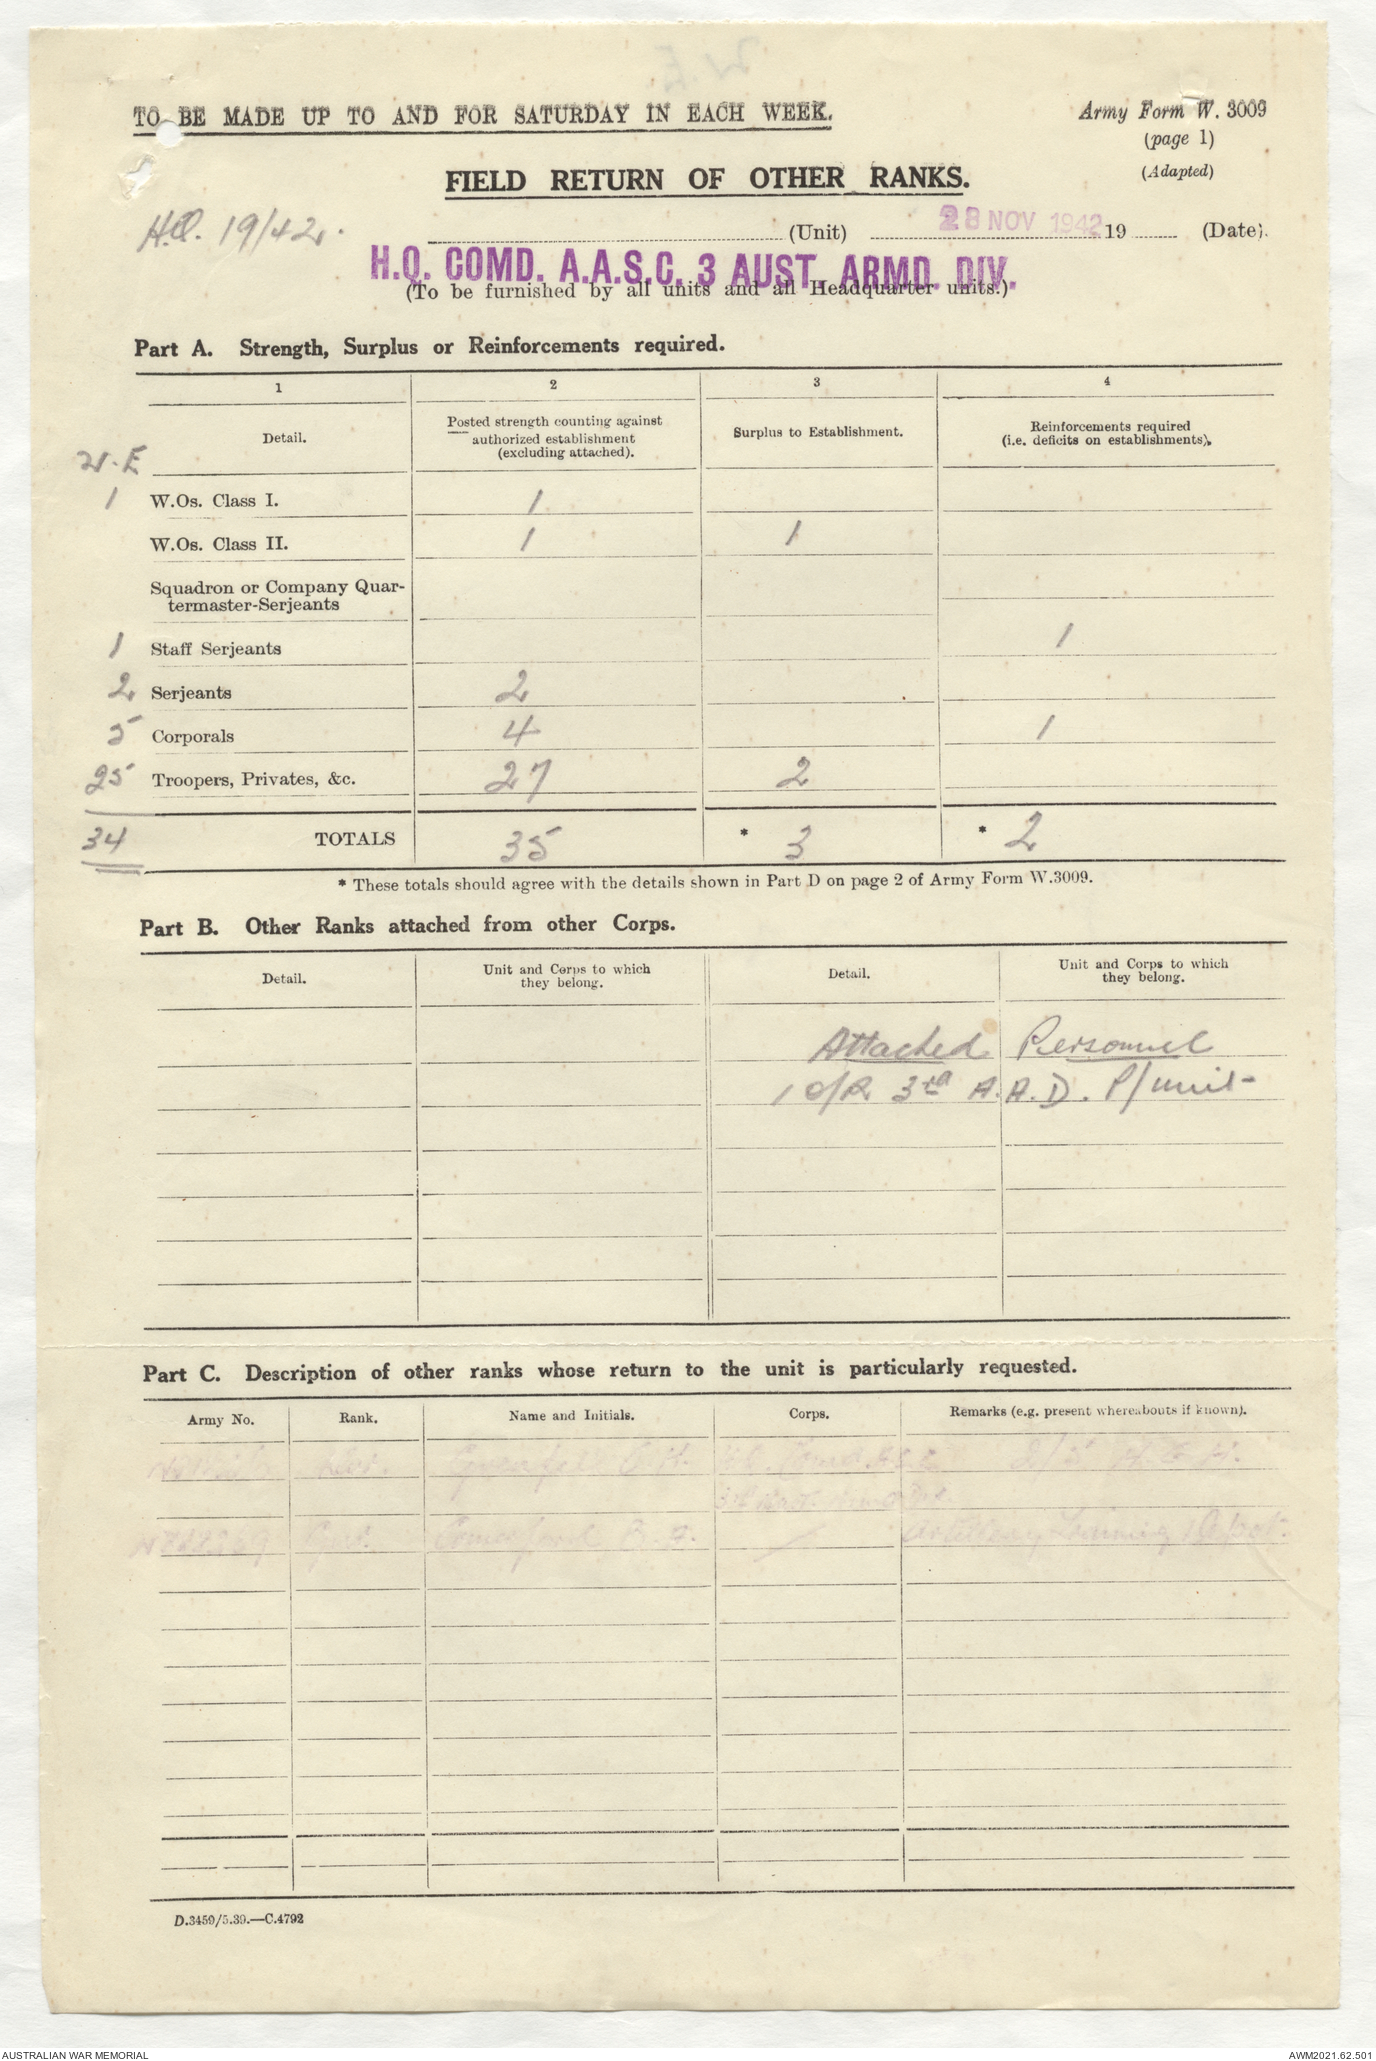 W.E
TO BE MADE UP TO AND FOR SATURDAY IN EACH WEEK.
Army Form W. 3009
(page 1)
(Adapted)
FIELD RETURN OF OTHER RANKS.
H.Q. 19/42.
(Unit) 28 NOV 1942 19 (Date).
H.Q. COMD. A.A.S.C. 3 AUST. ARMD. DIV.
(To be furnished by all units and all Headquarter units.)
Part A. Strength, Surplus or Reinforcements required.
1 2 3 4
Detail. Posted strength counting against authorized establishment (excluding attached). Surplus to Establishment. Reinforcements required (i.e. deficits on establishments).
W.E
1 W.Os. Class I. 1
W.Os. Class II. 1 1
Squadron or Company Quar-
termaster-Serjeants
1 Staff Serjeants 1
2 Serjeants 2
5 Corporals 4 1
25 Troopers, Privates, &c. 27 2
34 TOTALS 35 * 3 * 2
* These totals should agree with the details shown in Part D on page 2 of Army Form W.3009.
Part B. Other Ranks attached from other Corps.
Detail. Unit and Corps to which they belong. Detail. Unit and Corps to which they belong.
Attached Personnel
1 O/R 3rd A.A.D. P/unit
Part C. Description of other ranks whose return to the unit is particularly requested.
Army No. Rank. Name and Initials. Corps. Remarks (e.g. present whereabouts if known).
Dvr. H.Q. Comd. A.S.C.
3rd Aust. Armd Div.
Artillery Training Depot.
D.3450/5.39.—C.4792
AUSTRALIAN WAR MEMORIAL
AWM2021.62.501